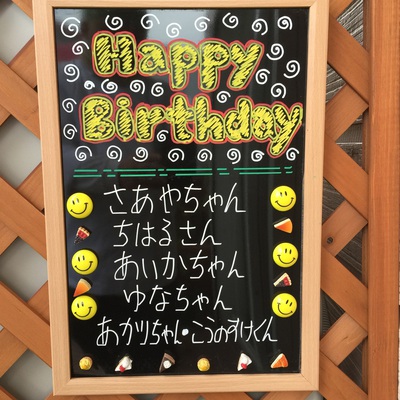 Happy
Birthday
さあやちゃん
ちはるさん
あいかちゃん
ゆなちゃん
あかりちゃん・こうのすけくん